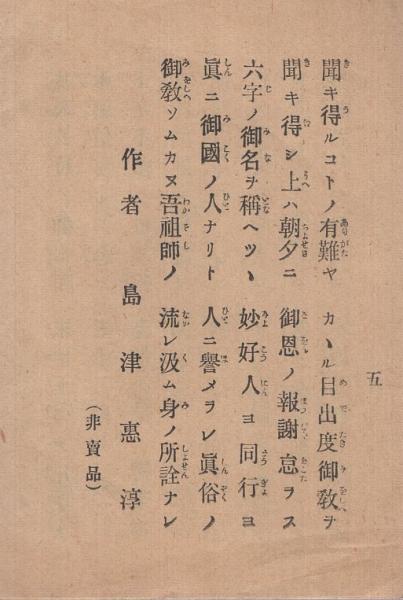 五
聞キ得ルコトノ有難ヤ カヽル目出度御教ヲ
聞キ得シ上ハ朝夕ニ 御恩ノ報謝怠ラス
六字ノ御名ヲ稱ヘツヽ 妙好人ヨ同行ヨ
眞ニ御國ノ人ナリト 人ニ譽メラレ眞俗ノ
御教ソムカヌ吾祖師ノ 流レ汲ム身ノ所詮ナレ
作者 島津惠淳
（非賣品）